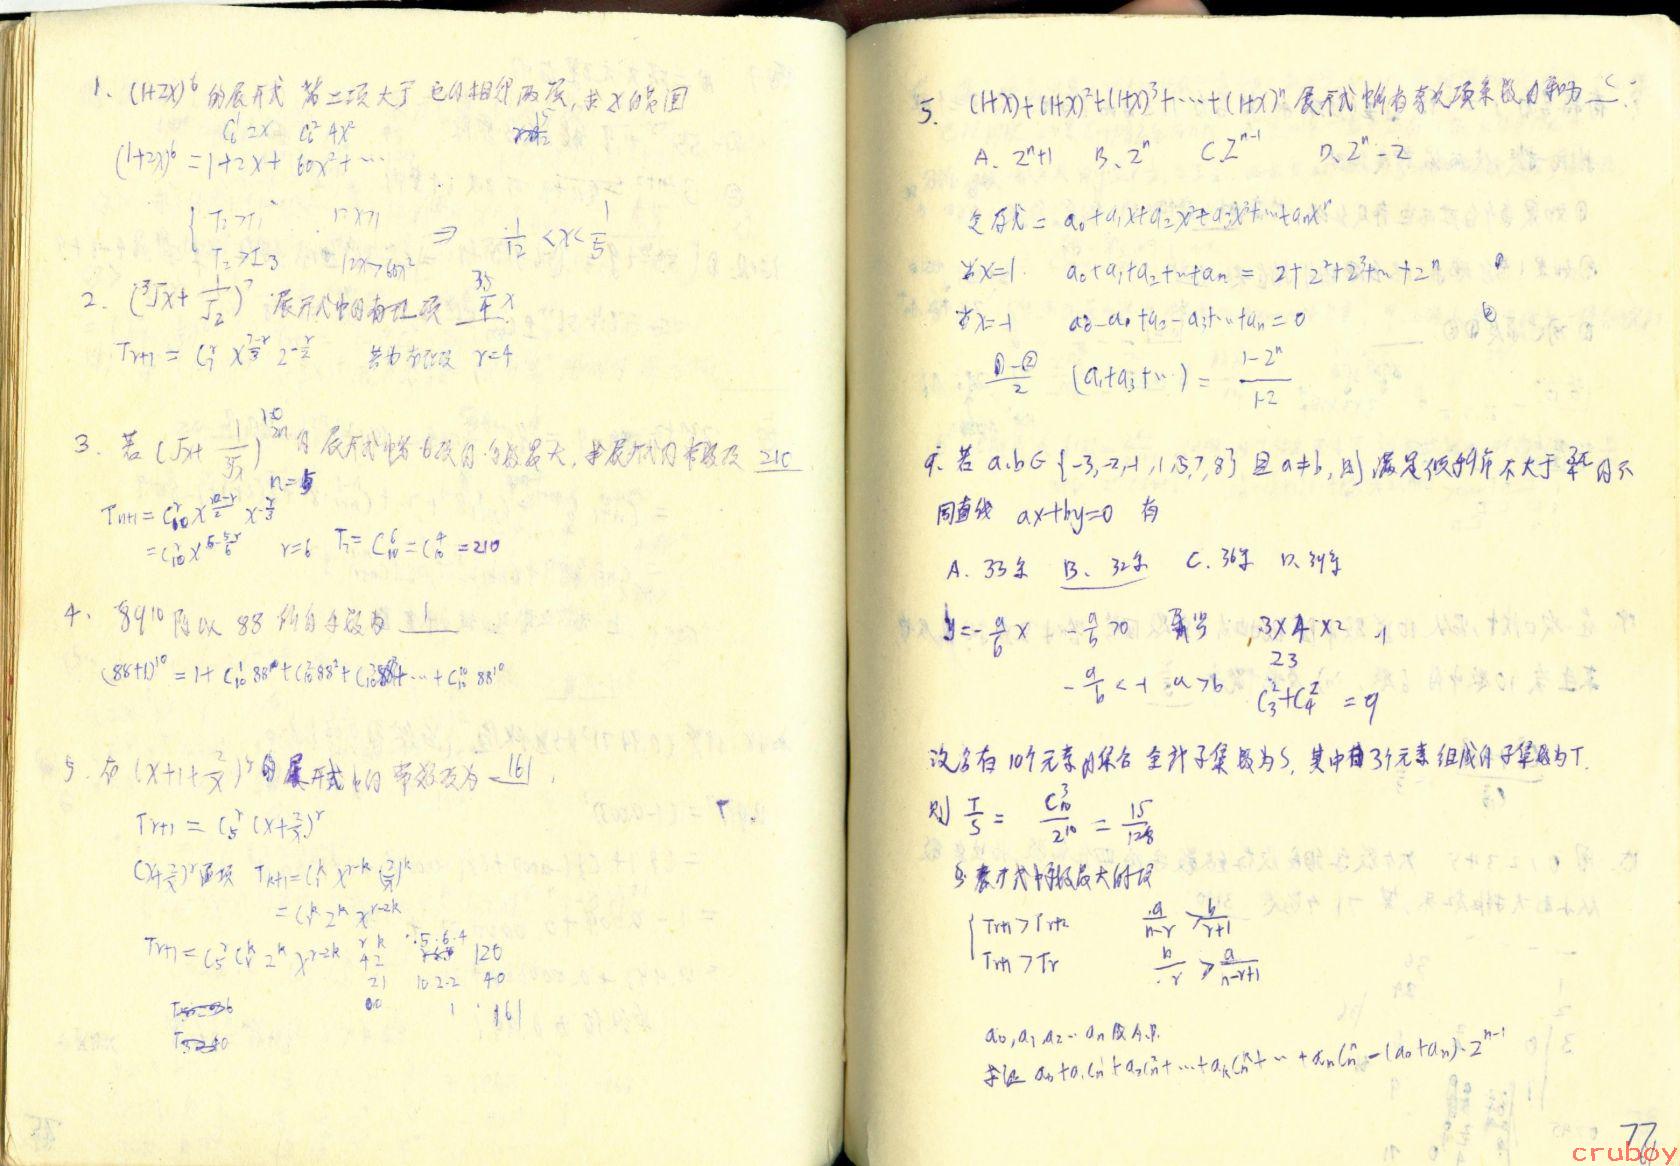 1. (1+2x)^6 的展开式 第二项大于它的相邻两项, 求x的范围
C_6^1 2x C_6^2 4x²
(1+2x)^6 = 1+2x+ 60x²+ ⋯
{ T₂>T₁ 12x>1
T₂>T₃ 12x>60x² ⇒ 1/12 <x< 1/5
2. (³√x + 1/√2)^7 展开式中的有理项 35/4 x
T_{r+1} = C_7^r x^{(7-r)/3} 2^{-r/2} r=4
3. 若 (√x + 1/³√x)^{2n} 的展开式中第6项的系数最大, 求展开式的常数项 210
n=5
T_{r+1} = C_{10}^r x^{(10-r)/2} x^{-r/3}
= C_{10}^r x^{5-5r/6} r=6 T₇= C_{10}^6 = C_{10}^4 =210
4. 89^{10} 除以 88 所得余数为 1
(88+1)^{10} = 1+ C_{10}^1 88 + C_{10}^2 88² + C_{10}^3 88³+ ⋯ + C_{10}^{10} 88^{10}
5. 在 (x+1+ 2/x)^5 的展开式中的常数项为 161.
T_{r+1} = C_5^r (x+2/x)^r
(x+2/x)^r 通项 T_{k+1} = C_r^k x^{r-k} (2/x)^k
= C_r^k 2^k x^{r-2k}
T_{r+1} = C_5^r C_r^k 2^k x^{r-2k} r k
4 2 5·6·4 120
2 1 10 2·2 40
0 0 1 161
5. (1+x)+(1+x)²+(1+x)³+⋯+(1+x)^n 展开式中所有奇次项系数的和为 C.
A. 2^n+1 B. 2^n C. 2^{n-1} D. 2^n-2
= a₀+a₁x+a₂x²+a₃x³+⋯+a_nx^n
当x=1. a₀+a₁+a₂+⋯+a_n = 2+2²+2³+⋯+2^n ①
当x=-1 a₀-a₁+a₂-a₃+⋯+a_n=0 ②
(①-②)/2 (a₁+a₃+⋯) = (1-2^n)/(1-2)
9. 若 a.b∈ {-3,-2,-1,1,5,7,8} 且 a≠b, 则 满足倾斜角不大于 的不
同直线 ax+by=0 有
A. 33条 B. 32条 C. 36条 D. 34条
y=-a/b x -a/b>0 异号 3×4×2 -1
23
-a/b<-1 a>b C_3^2+C_4^2 =9
设含有10个元素的集合 全部子集数为S, 其中由3个元素组成的子集数为T.
则 T/S = C_{10}^3/2^{10} = 15/128
展开式中系数最大的项
{ T_{r+1}>T_{r+2} a/(n-r) > b/(r+1)
T_{r+1}>T_r b/r > a/(n-r+1)
a₀,a₁,a₂⋯a_n 成A.P.
求证 a₀+a₁C_n^1+a₂C_n^2+⋯+a_kC_n^k+⋯+a_nC_n^n = (a₀+a_n)·2^{n-1}
77
cruboy